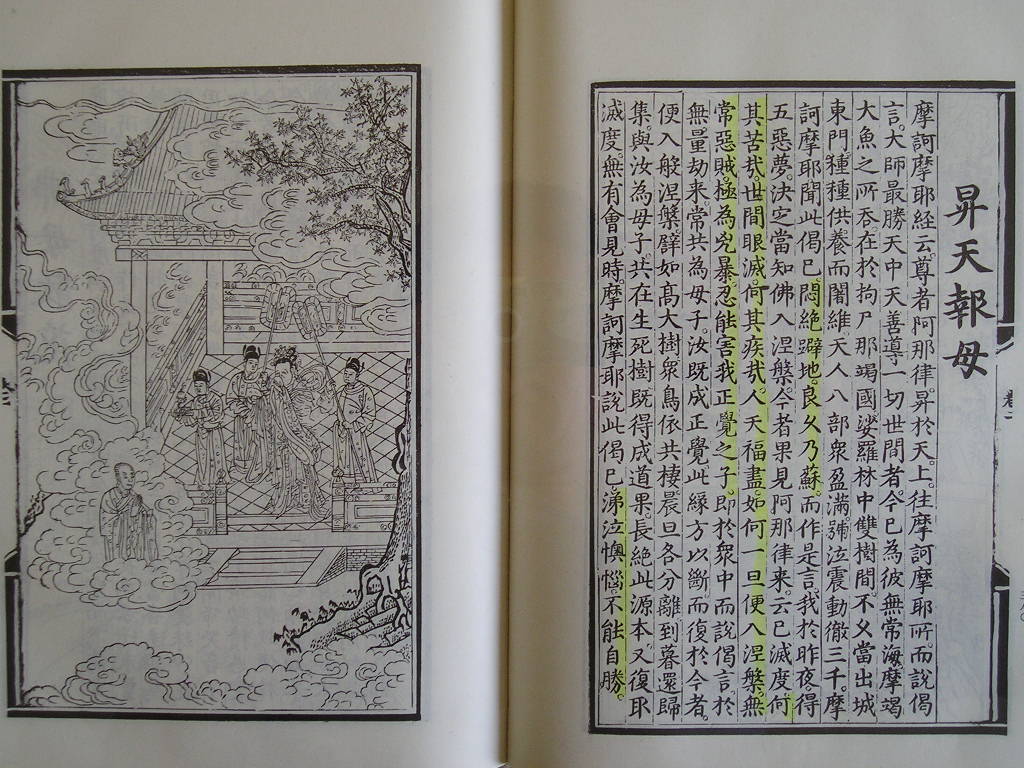 昇天報母
摩訶摩耶經云。尊者阿那律昇於天上。往摩訶摩耶所。而說偈
言。大師最勝天中天善導一切世間者。今已為彼無常海摩竭
大魚之所吞。在於拘尸那竭國娑羅林中雙樹間。不久當出城
東門種種供養而闍維。天人八部眾盈滿。號泣震動徹三千。摩
訶摩耶聞此偈已。悶絕躃地。良久乃蘇。而作是言。我於昨夜得
五惡夢。決定當知佛入涅槃。今者果見阿那律來。云已滅度。何
其苦哉。世間眼滅。何其疾哉。人天福盡。如何一旦便入涅槃。無
常惡賊。極為兇暴。忍能害我正覺之子。即於眾中而說偈言。於
無量劫來。常共為母子。汝既成正覺。此緣方以斷。而復於今者。
便入般涅槃。譬如高大樹。眾鳥依共棲。晨旦各分離。到暮還歸
集。與汝為母子。共在生死樹。既得成道果。長絕此源本。又復取
滅度。無有會見時。摩訶摩耶說此偈已。涕泣懊惱。不能自勝。
卷二